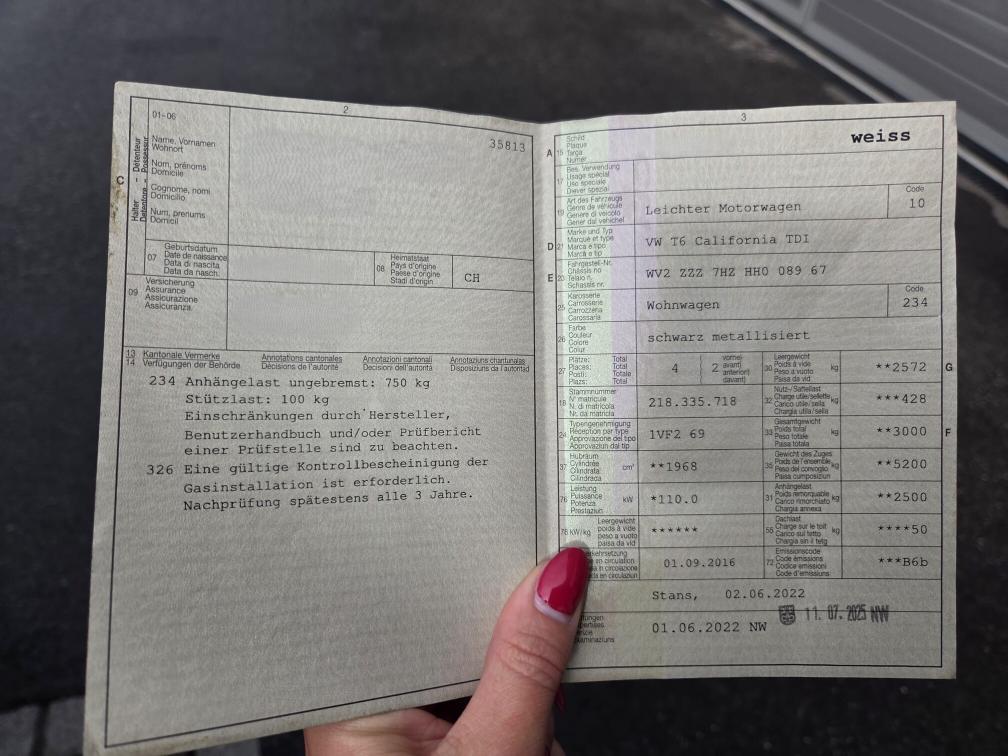 2
01-06
35813
Name, Vornamen
Wohnort
Nom, prénoms
Domicile
Cognome, nomi
Domicilio
Num, prenums
Domicil
C
Halter - Détenteur
Detentore - Possessur
07
Geburtsdatum
Date de naissance
Data di nascita
Data da nasch.
08
Heimatstaat
Pays d'origine
Paese d'origine
Stadi d'origin
CH
09
Versicherung
Assurance
Assicurazione
Assicuranza
13 Kantonale Vermerke Annotations cantonales Annotazioni cantonali Annotaziuns chantunalas
14 Verfügungen der Behörde Décisions de l'autorité Decisioni dell'autorità Disposiziuns da l'autoritad
234 Anhängelast ungebremst: 750 kg
Stützlast: 100 kg
Einschränkungen durch Hersteller,
Benutzerhandbuch und/oder Prüfbericht
einer Prüfstelle sind zu beachten.
326 Eine gültige Kontrollbescheinigung der
Gasinstallation ist erforderlich.
Nachprüfung spätestens alle 3 Jahre.
3
A 15
Schild
Plaque
Targa
Numer
weiss
17
Bes. Verwendung
Usage spécial
Uso speciale
Diever spezial
19
Art des Fahrzeugs
Genre de véhicule
Genere di veicolo
Gener dal vehichel
Leichter Motorwagen
Code
10
D 21
Marke und Typ
Marque et type
Marca e tipo
Marca e tip
VW T6 California TDI
E 23
Fahrgestell-Nr.
Châssis no
Telaio n.
Schassis nr.
WV2 ZZZ 7HZ HH0 089 67
25
Karosserie
Carrosserie
Carrozzeria
Carossaria
Wohnwagen
Code
234
26
Farbe
Couleur
Colore
Colur
schwarz metallisiert
27
Plätze: Total
Places: Total
Posti: Totale
Plazs: Total
4
2
vorne)
avant)
anteriori)
davant)
30
Leergewicht
Poids à vide
Peso a vuoto
Paisa da vid
kg
**2572
G
18
Stammnummer
N° matricule
N. di matricola
Nr. da matricla
218.335.718
32
Nutz-/Sattellast
Charge utile/sellette
Carico utile/sella
Chargia utila/sella
kg
***428
24
Typengenehmigung
Réception par type
Approvazione del tipo
Approvaziun dal tip
1VF2 69
33
Gesamtgewicht
Poids total
Peso totale
Paisa totala
kg
**3000
F
37
Hubraum
Cylindrée
Cilindrata
Cilindrada
cm³
**1968
35
Gewicht des Zuges
Poids de l'ensemble
Peso del convoglio
Paisa cumposiziun
kg
**5200
76
Leistung
Puissance
Potenza
Prestaziun
kW
*110.0
31
Anhängelast
Poids remorquable
Carico rimorchiato
Chargia annexa
kg
**2500
78 kW/kg
Leergewicht
poids à vide
peso a vuoto
paisa da vid
******
55
Dachlast
Charge sur le toit
Carico sul tetto
Chargia sin il tetg
kg
****50
en circulation
in circolazione
en circulaziun
01.09.2016
72
Emissionscode
Code émissions
Codice emissioni
Code d'emissiuns
***B6b
Stans, 02.06.2022
01.06.2022 NW
11. 07. 2025 NW